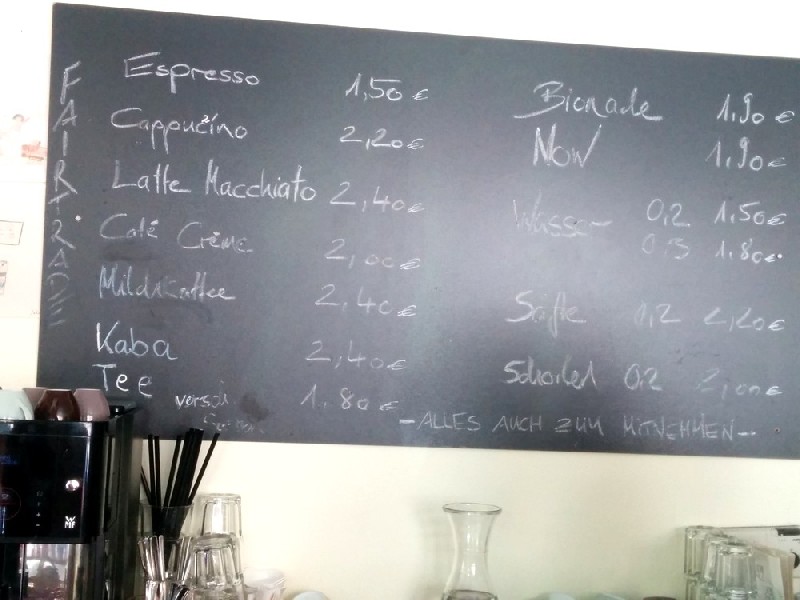 FAIRTRADE
Espresso 1,50 €
Cappucino 2,20 €
Latte Macchiato 2,40 €
Café Crème 2,00 €
Milchkaffee 2,40 €
Kaba 2,40 €
Tee 1,80 €
Bionade 1,90 €
NOW 1,90 €
Wasser 0,2 1,50 €
0,3 1,80 €
Säfte 0,2 2,20 €
Schorlen 0,2 2,00 €
- ALLES AUCH ZUM MITNEHMEN -
WMF